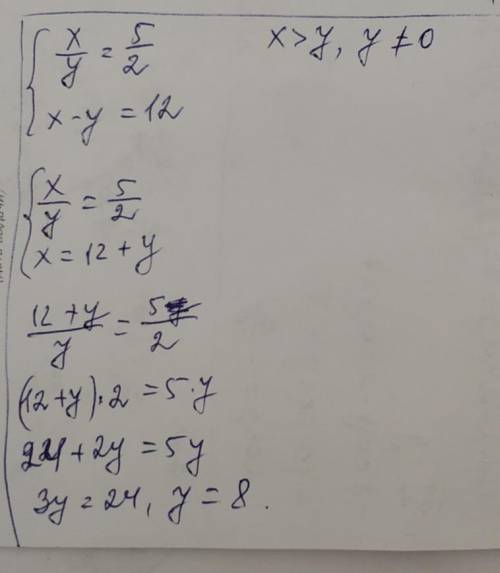 x/y = 5/2   x > y, y ≠ 0
x - y = 12
x/y = 5/2
x = 12 + y
(12 + y)/y = 5/2
(12 + y) · 2 = 5 · y
24 + 2y = 5y
3y = 24, y = 8.